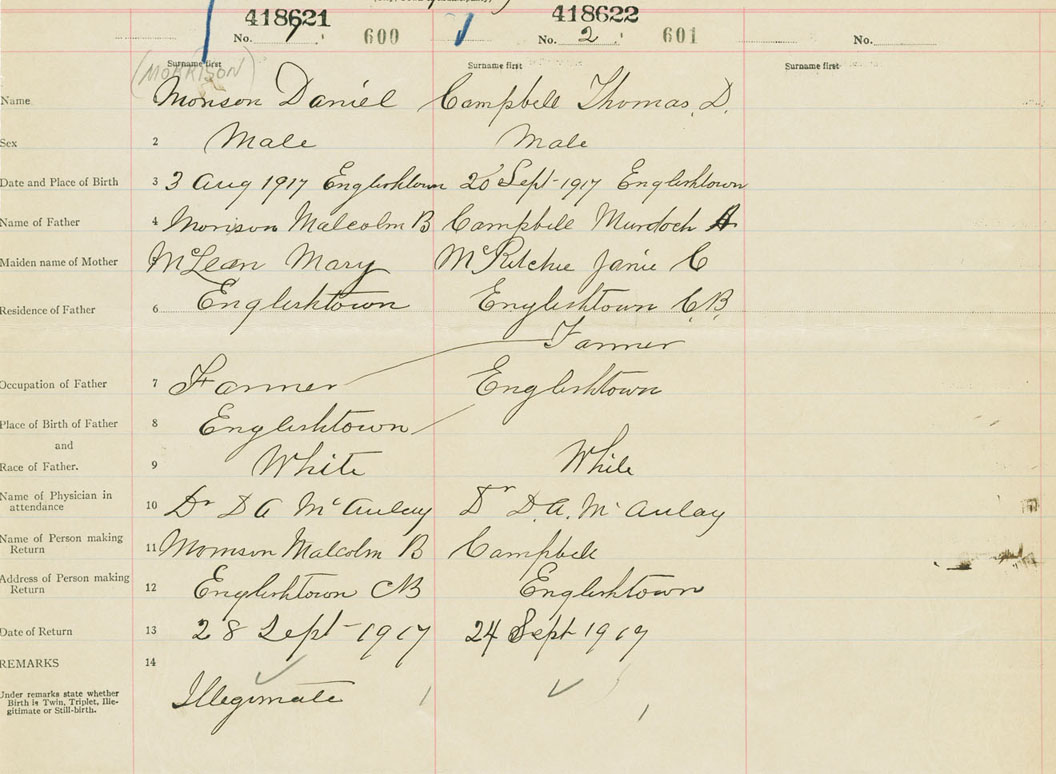 418621 418622
No. 1 600 No. 2 601 No.
Surname first Surname first Surname first
(MORRISON)
Name Morison Daniel Campbell Thomas D.
Sex 2 Male Male
Date and Place of Birth 3 3 Aug 1917 Englishtown 20 Sept-1917 Englishtown
Name of Father 4 Morison Malcolm B Campbell Murdoch A
Maiden name of Mother 5 McLean Mary McRitchie Janie C
Residence of Father 6 Englishtown Englishtown C.B.
Farmer
Occupation of Father 7 Farmer Englishtown
Place of Birth of Father 8 Englishtown
and
Race of Father. 9 White White
Name of Physician in
attendance 10 Dr D A McAulay Dr D.A. McAulay
Name of Person making
Return 11 Morrison Malcolm B Campbell
Address of Person making
Return 12 Englishtown CB Englishtown
Date of Return 13 28 Sept-1917 24 Sept 1917
REMARKS 14
Under remarks state whether
Birth is Twin, Triplet, Ille-
gitimate or Still-birth.
Illegimate